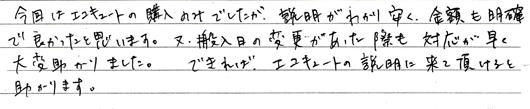 今回はエコキュートの購入のみでしたが、説明がわかり安く、金額も明確
で良かったと思います。又、搬入日の変更があった際も対応が早く
大変助かりました。 できれば、エコキュートの説明に来て頂けると
助かります。